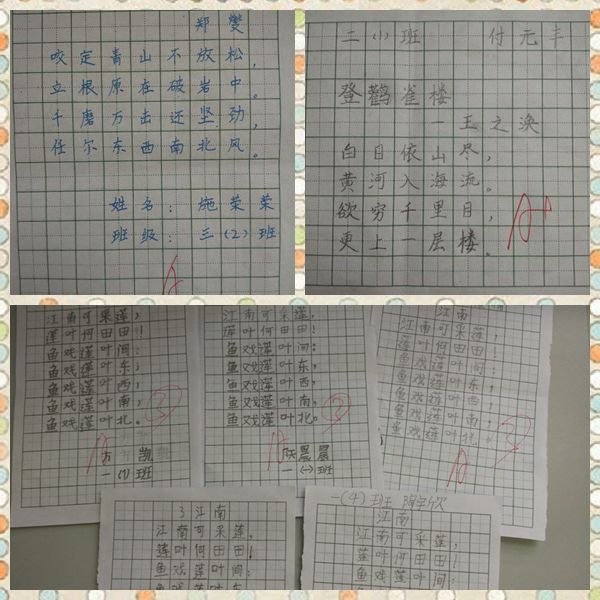 郑燮
咬定青山不放松,
立根原在破岩中。
千磨万击还坚劲,
任尔东西南北风。
姓名:施荣荣
班级:三(2)班
A
二小班 付元丰
登鹳雀楼
一王之涣
白日依山尽,
黄河入海流。
欲穷千里目,
更上一层楼。
A+
江南可采莲,
莲叶何田田!
鱼戏莲叶间:
鱼戏莲叶东;
鱼戏莲叶西;
鱼戏莲叶南;
鱼戏莲叶北。
A
方凯
一(1)班
江南可采莲,
莲叶何田田!
鱼戏莲叶间:
鱼戏莲叶东,
鱼戏莲叶西,
鱼戏莲叶南,
鱼戏莲叶北。
A
晨晨
一(一)班
江南
江南可采莲,
莲叶何田田!
鱼戏莲叶间:
鱼戏莲叶东,
鱼戏莲叶西,
鱼戏莲叶南,
鱼戏莲叶北。
A
3江南
江南可采莲,
莲叶何田田!
鱼戏莲叶间:
鱼戏莲叶东
一(4)班
江南
江南可采莲,
莲叶何田田!
鱼戏莲叶间: